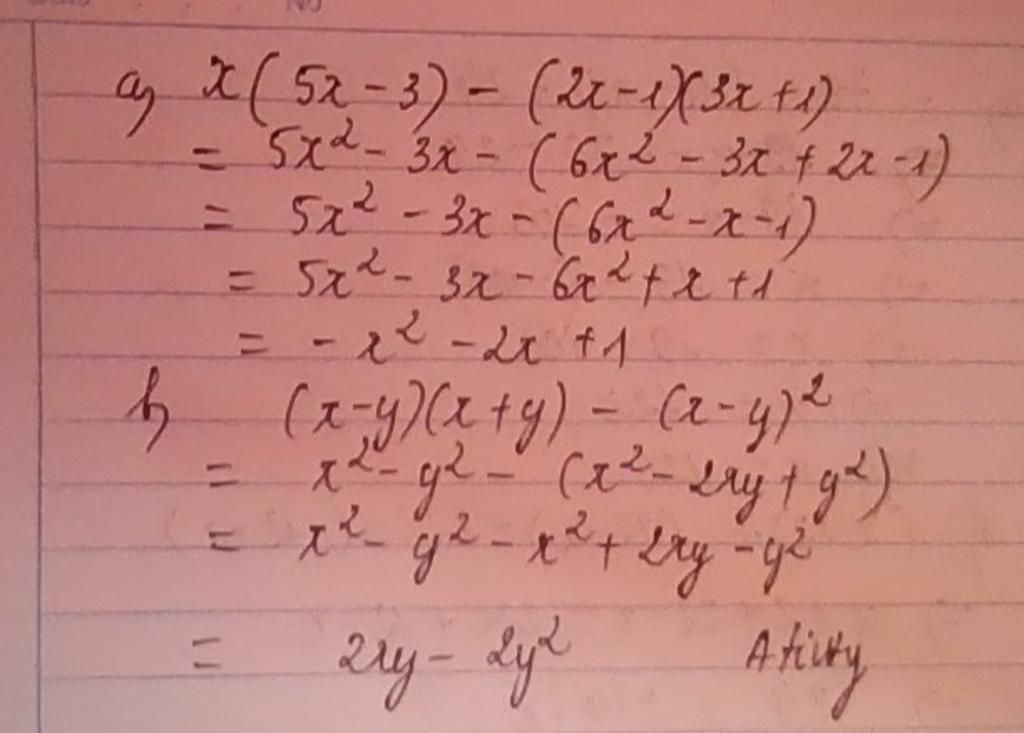 a, x(5x-3) - (2x-1)(3x+1)
= 5x² - 3x - (6x² - 3x + 2x - 1)
= 5x² - 3x - (6x² - x - 1)
= 5x² - 3x - 6x² + x + 1
= -x² - 2x + 1
b, (x-y)(x+y) - (x-y)²
= x² - y² - (x² - 2xy + y²)
= x² - y² - x² + 2xy - y²
= 2xy - 2y²